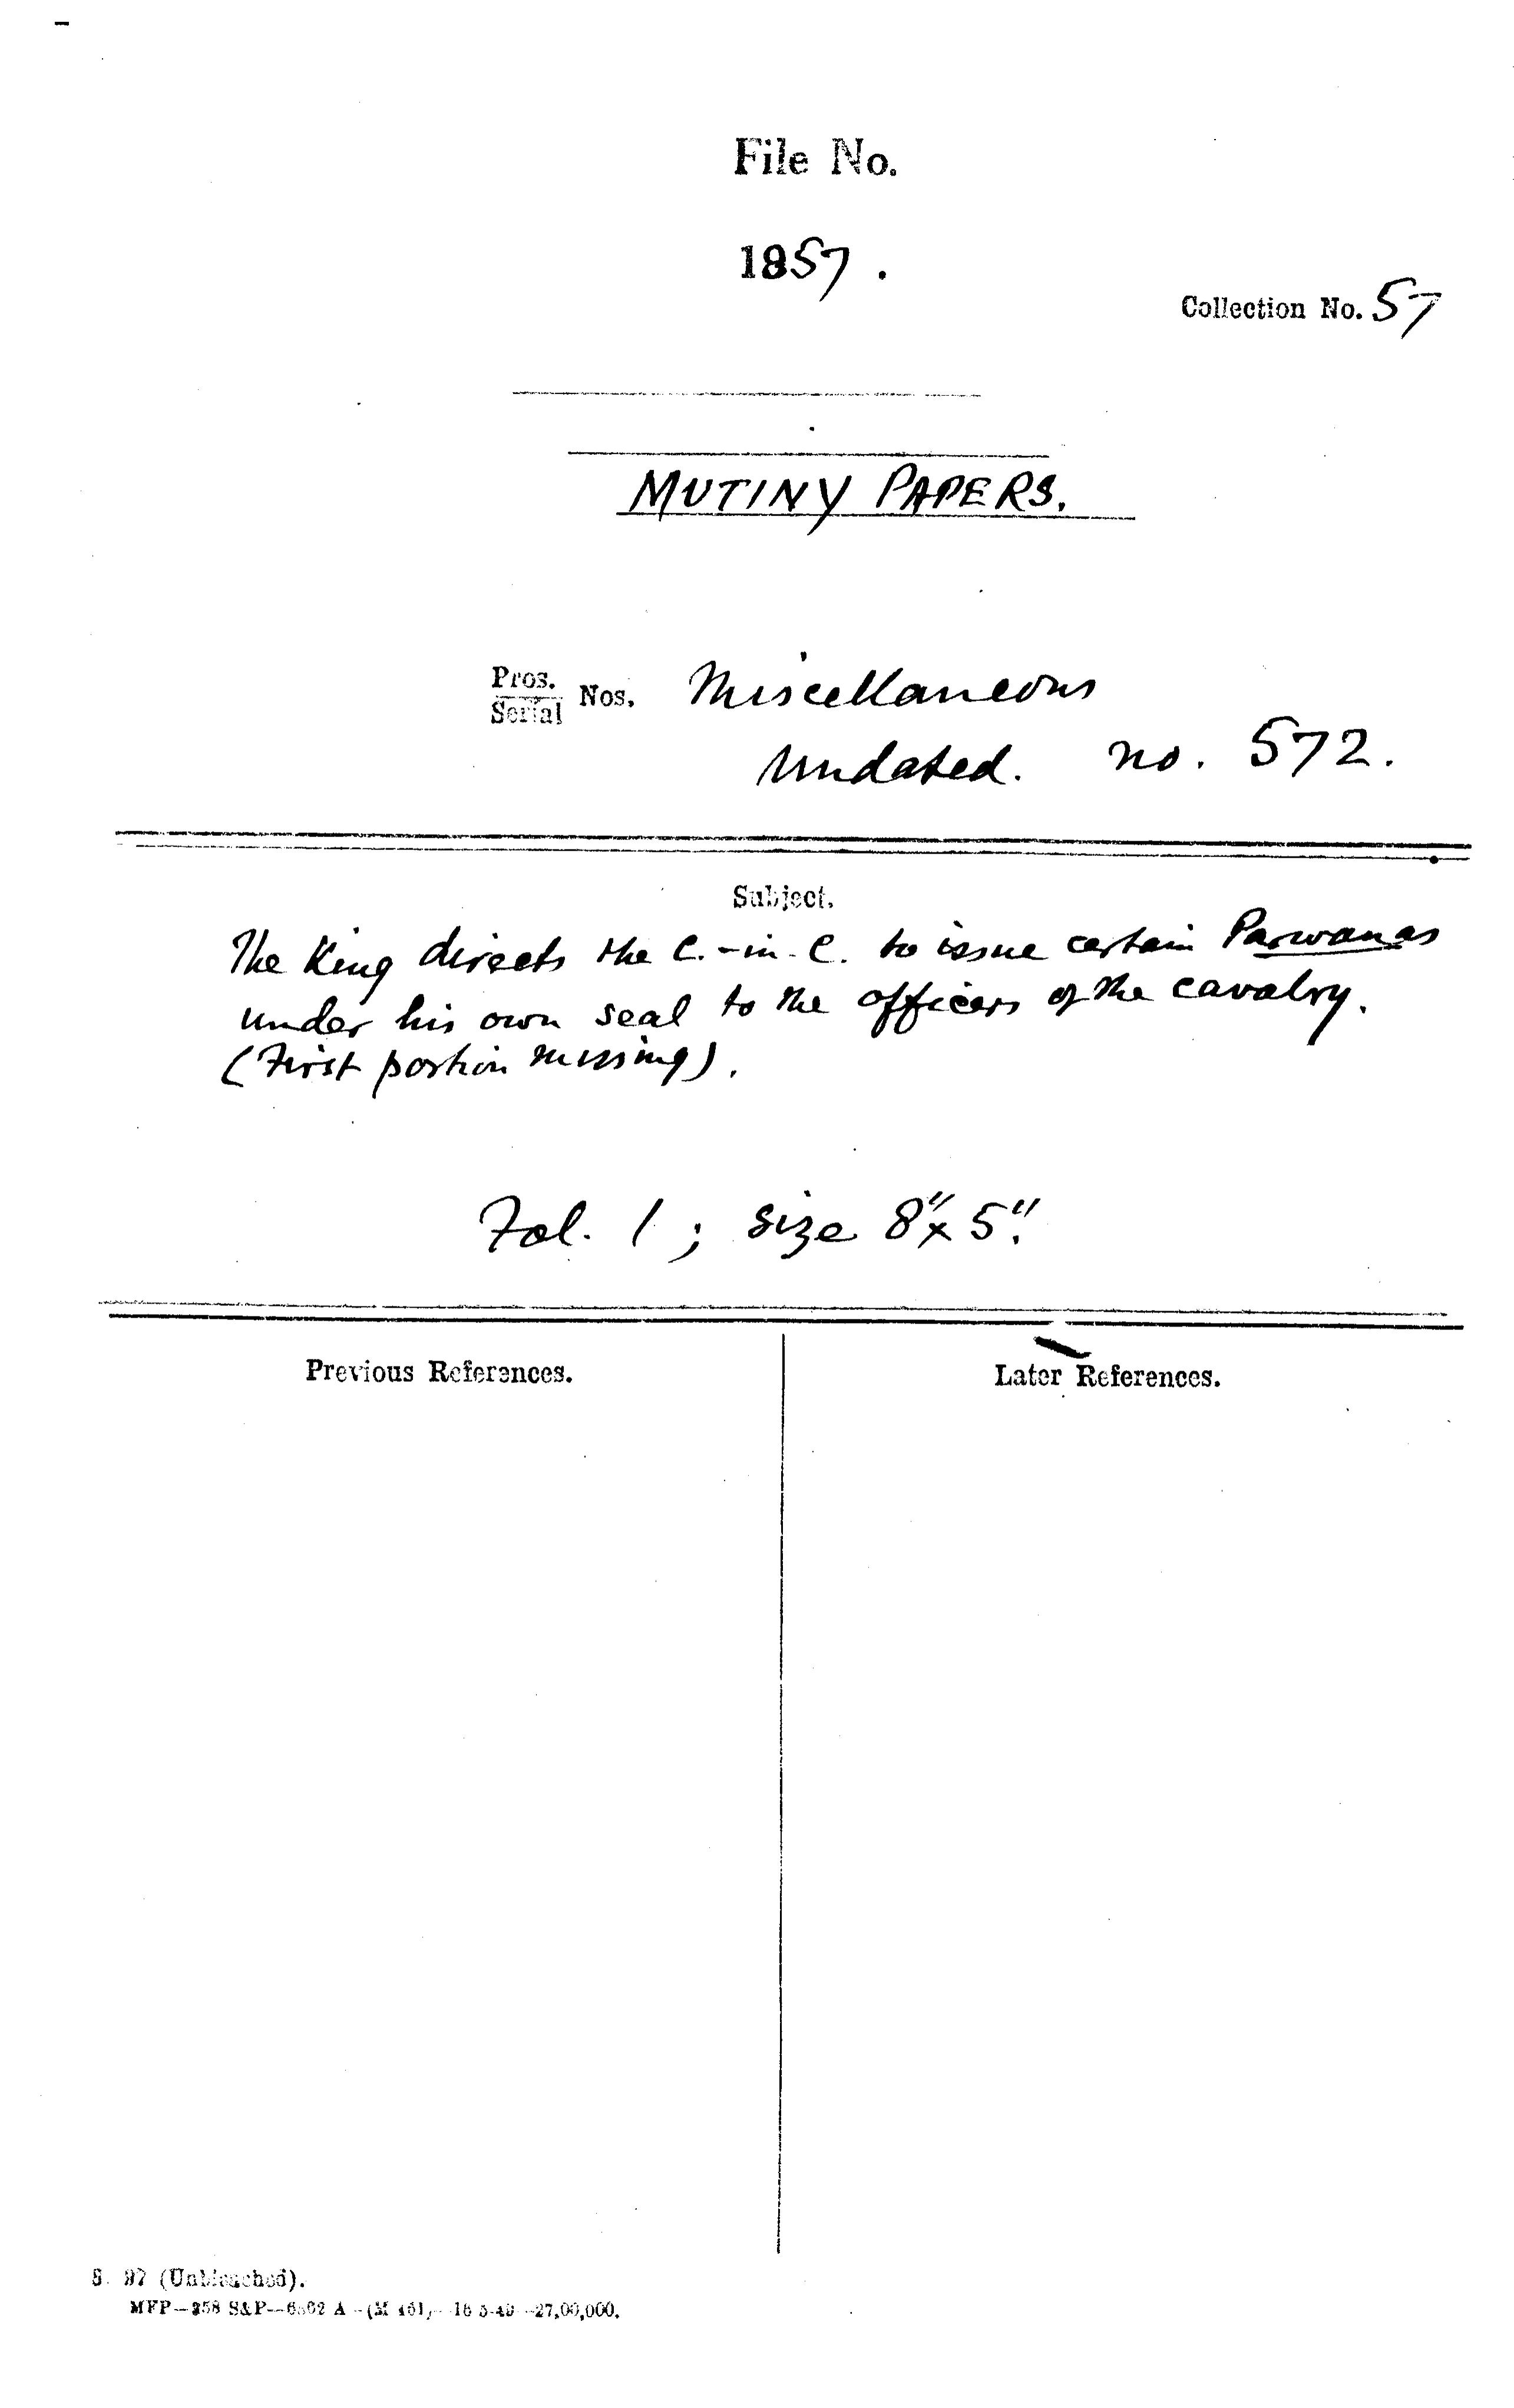 File No.
1857.
Collection No. 57
MUTINY PAPERS.
Pros.
Serial Nos. Miscellaneous
Undated. no. 572.
Subject.
The King directs the C.-in-C. to issue certain Parwanas
under his own seal to the officers of the cavalry.
(First portion missing).
Fol. 1; size 8"x 5".
Previous References.
Later References.
S. 97 (Unbleached).
MFP—358 S&P— A —27,00,000.